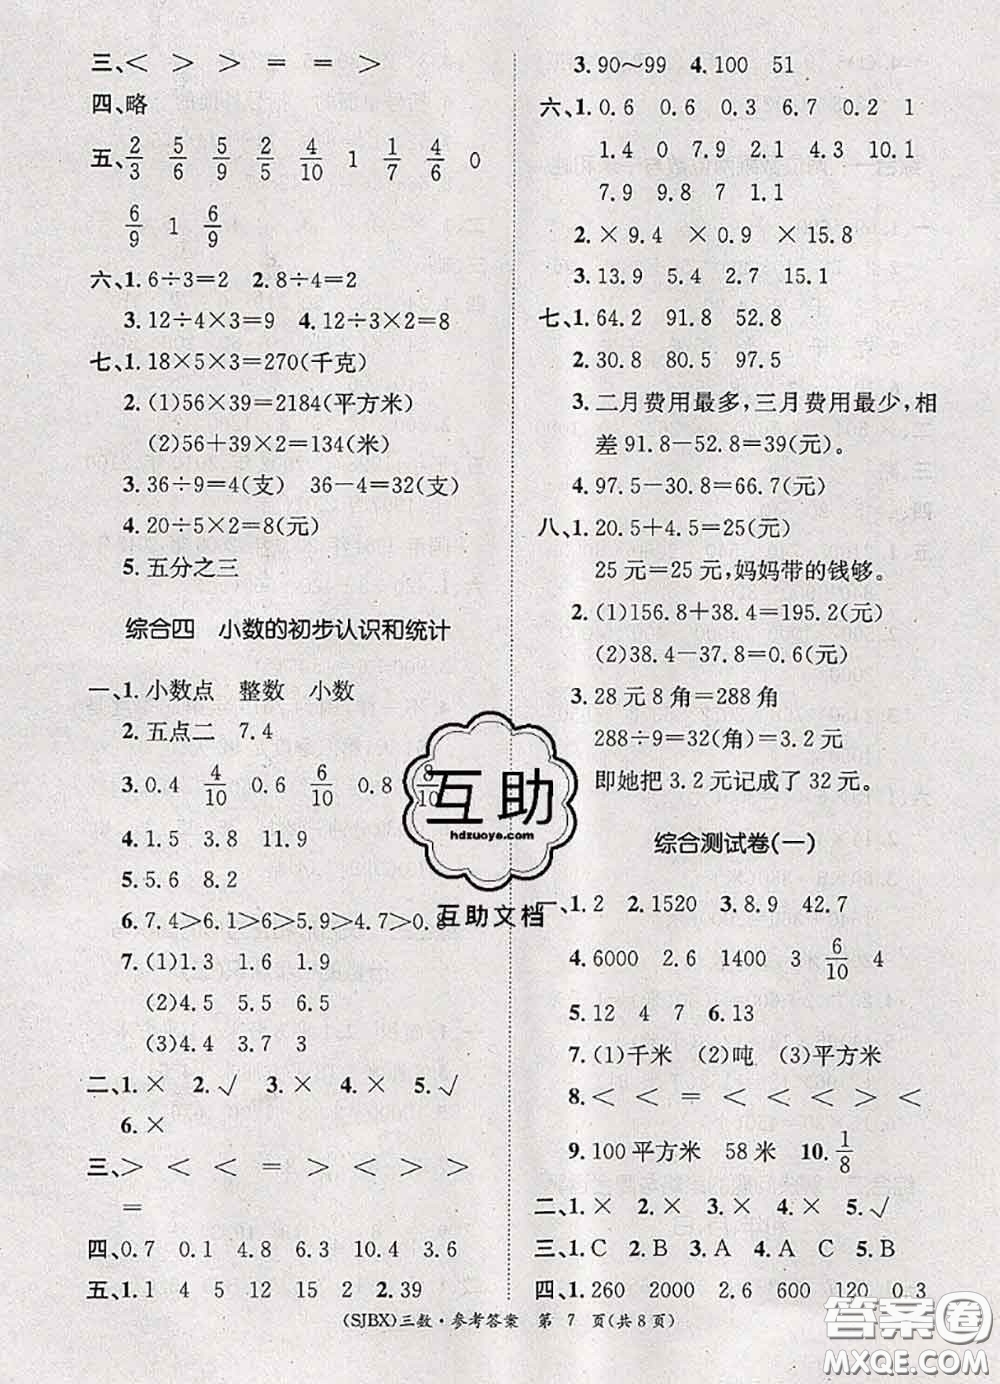 三、＜ ＞ ＞ ＝ ＝ ＞
四、略
五、2/3 5/6 5/9 2/5 4/10 1 1/7 4/6 0
6/9 1 6/9
六、1. 6÷3＝2 2. 8÷4＝2
3. 12÷4×3＝9 4. 12÷3×2＝8
七、1. 18×5×3＝270(千克)
2. (1)56×39＝2184(平方米)
(2)56＋39×2＝134(米)
3. 36÷9＝4(支) 36－4＝32(支)
4. 20÷5×2＝8(元)
5. 五分之三
综合四 小数的初步认识和统计
一、1. 小数点 整数 小数
2. 五点二 7.4
3. 0.4 4/10 0.6 6/10 0.8 8/10
4. 1.5 3.8 11.9
5. 5.6 8.2
6. 7.4＞6.1＞5.9＞5.8＞4.7＞0.8
7. (1)1.3 1.6 1.9
(2)4.5 5.5 6.5
(3)4.4 3.7 3
二、1. × 2. √ 3. × 4. × 5. √
6. ×
三、＞ ＜ ＜ ＝ ＞ ＜ ＞ ＞
＝
四、0.7 0.1 4.8 6.3 10.4 3.6
五、1. 1 4 5 12 15 2 2. 39
3. 90～99 4. 100 51
六、1. 0.6 0.6 0.3 6.7 0.2 1
1.4 0 7.9 2.1 4.3 10.1
7.9 9.8 7 1.1
2. × 9.4 × 0.9 × 15.8
3. 13.9 5.4 2.7 15.1
七、1. 64.2 91.8 52.8
2. 30.8 80.5 97.5
3. 二月费用最多，三月费用最少，相
差 91.8－52.8＝39(元)。
4. 97.5－30.8＝66.7(元)
八、1. 20.5＋4.5＝25(元)
25 元＝25 元，妈妈带的钱够。
2. (1)156.8＋38.4＝195.2(元)
(2)38.4－37.8＝0.6(元)
3. 28 元 8 角＝288 角
288÷9＝32(角)＝3.2 元
即她把 3.2 元记成了 32 元。
综合测试卷(一)
一、1. 2 2. 1520 3. 8.9 42.7
4. 6000 2.6 1400 3 6/10 4
5. 12 4 7 6. 13
7. (1)千米 (2)吨 (3)平方米
8. ＜ ＜ ＝ ＜ ＜ ＜ ＞ ＜
9. 100 平方米 58 米 10. 1/8
二、1. × 2. × 3. × 4. × 5. √
三、1. C 2. B 3. A 4. A C 5. A B
四、1. 260 2000 2.6 600 120 0.3
(SJBX)三数·参考答案 第 7 页(共 8 页)
互助
hdzuoye.com
互助文档
答案圈
MXQE.COM